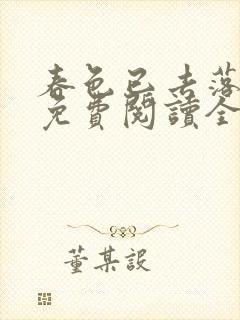 春色已去落
免費閱讀全
董某設